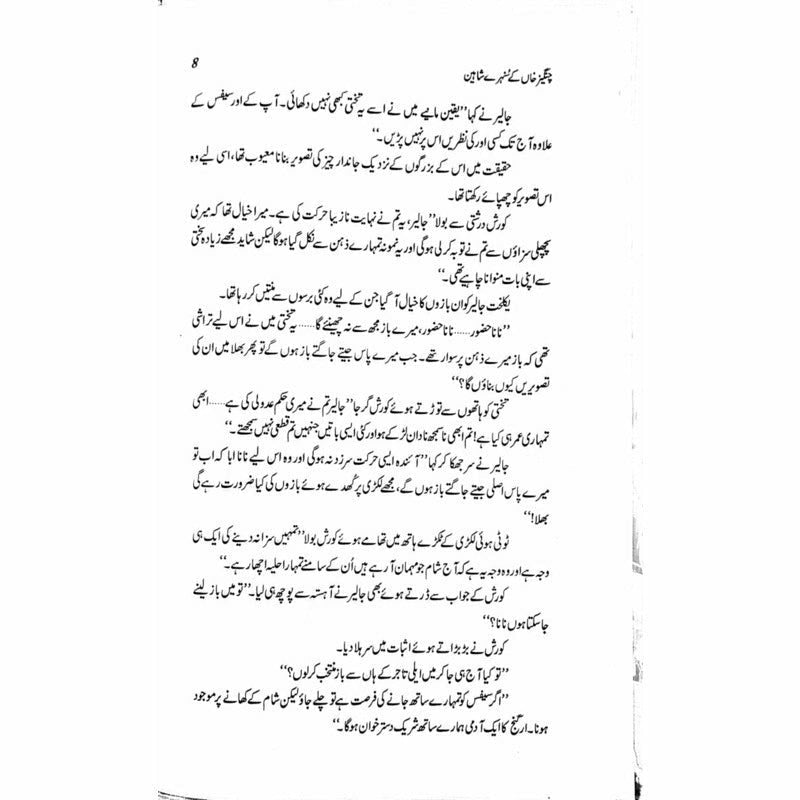 چنگیز خاں کے سنہرے شاہین
8
جالیر نے کہا ’’یقین مانیے میں نے اسے یہ تختی کبھی نہیں دکھائی۔ آپ کے اور سیفس کے
علاوہ آج تک کسی اور کی نظریں اس پر نہیں پڑیں۔‘‘
حقیقت میں اس کے بزرگوں کے نزدیک جاندار چیز کی تصویر بنانا معیوب تھا، اسی لیے وہ
اس تصویر کو چھپائے رکھتا تھا۔
کورش درشتی سے بولا ’’جالیر، یہ تم نے نہایت نازیبا حرکت کی ہے۔ میرا خیال تھا کہ میری
پچھلی سزاؤں سے تم نے توبہ کر لی ہوگی اور یہ نمونہ تمہارے ذہن سے نکل گیا ہوگا لیکن شاید مجھے زیادہ سختی
سے اپنی بات منوانا چاہیے تھی۔‘‘
یکلخت جالیر کو ان بازوں کا خیال آ گیا جن کے لیے وہ کئی برسوں سے منتیں کر رہا تھا۔
’’نانا حضور...... نانا حضور، میرے باز مجھ سے نہ چھینئے گا...... یہ تختی میں نے اس لیے تراشی
تھی کہ باز میرے ذہن پر سوار تھے۔ جب میرے پاس جیتے جاگتے باز ہوں گے تو پھر بھلا میں ان کی
تصویریں کیوں بناؤں گا؟‘‘
تختی کو ہاتھوں سے توڑتے ہوئے کورش گرجا ’’جالیر تم نے میری حکم عدولی کی ہے...... ابھی
تمہاری عمر ہی کیا ہے! تم ابھی ناسمجھ نادان لڑکے ہو اور کئی ایسی باتیں جنہیں تم قطعی نہیں سمجھتے۔‘‘
جالیر نے سر جھکا کر کہا ’’آئندہ ایسی حرکت سرزد نہ ہوگی اور وہ اس لیے نانا ابا کہ اب تو
میرے پاس اصلی جیتے جاگتے باز ہوں گے، مجھے لکڑی پر کُھدے ہوئے بازوں کی کیا ضرورت رہے گی
بھلا!‘‘
ٹوٹی ہوئی لکڑی کے ٹکڑے ہاتھ میں تھامے ہوئے کورش بولا ’’تمہیں سزا نہ دینے کی ایک ہی
وجہ ہے اور وہ وجہ یہ ہے کہ آج شام جو مہمان آ رہے ہیں اُن کے سامنے تمہارا حلیہ اچھا رہے۔‘‘
کورش کے جواب سے ڈرتے ہوئے بھی جالیر نے آہستہ سے پوچھ ہی لیا۔ ’’تو میں باز لینے
جا سکتا ہوں نانا؟‘‘
کورش نے بڑبڑاتے ہوئے اثبات میں سر ہلا دیا۔
’’تو کیا آج ہی جا کر میں ایلی تاجر کے ہاں سے باز منتخب کر لوں؟‘‘
’’اگر سیفس کو تمہارے ساتھ جانے کی فرصت ہے تو چلے جاؤ لیکن شام کے کھانے پر موجود
ہونا۔ ارگنج کا ایک آدمی ہمارے ساتھ شریک دسترخوان ہوگا۔‘‘